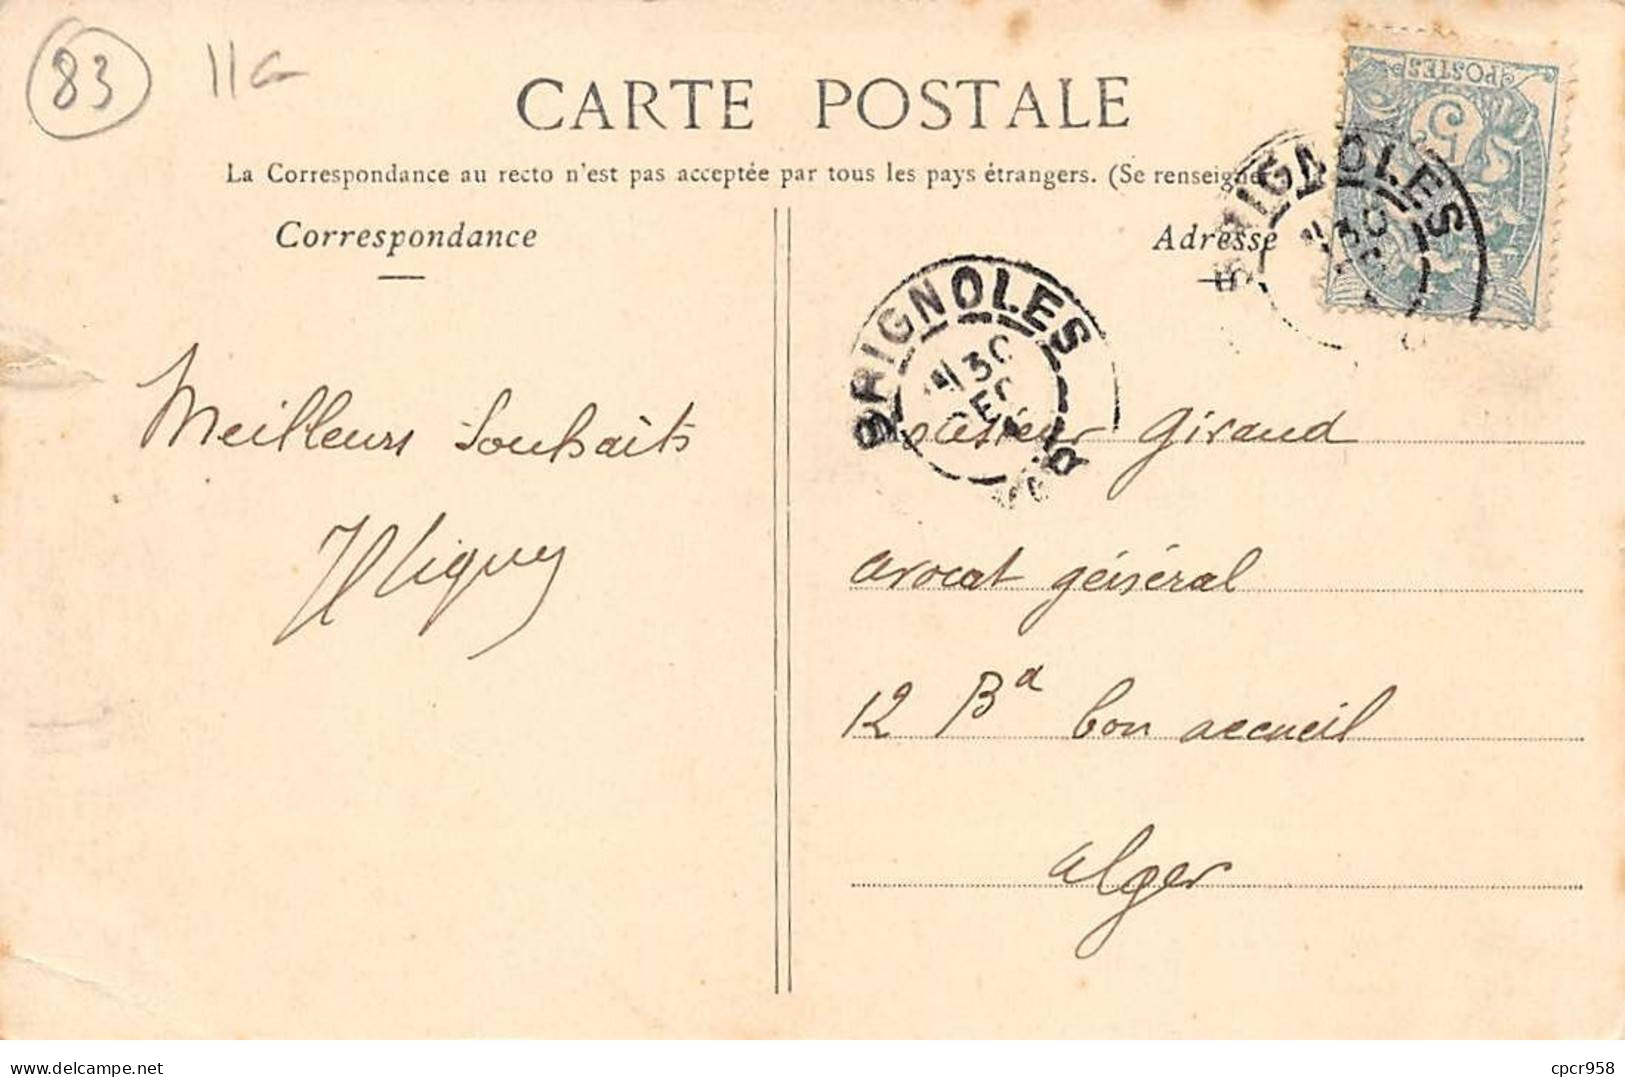 83
11G
CARTE POSTALE
La Correspondance au recto n'est pas acceptée par tous les pays étrangers. (Se renseigne
Correspondance
Adresse
POSTES
5
BRIGNOLES
30
BRIGNOLES
30
VAR
Meilleurs Souhaits
Monsieur Giraud
avocat général
12 Bd bon accueil
alger
cpcr958